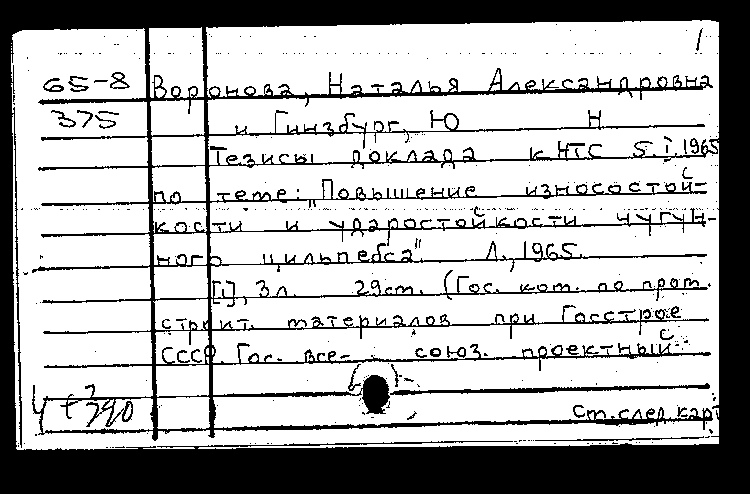 1
65-8 Воронова, Наталья Александровна
375 и Гинзбург, Ю Н
Тезисы доклада к НТС 5.I.1965
по теме: „Повышение износостой-
кости и ударостойкости чугун-
ного цильпебса". Л., 1965.
[1], 3 л. 29 ст. (Гос. ком. по пром.
строит. материалов при Госстрое
СССР. Гос. все- союз. проектный
ст. след. карт